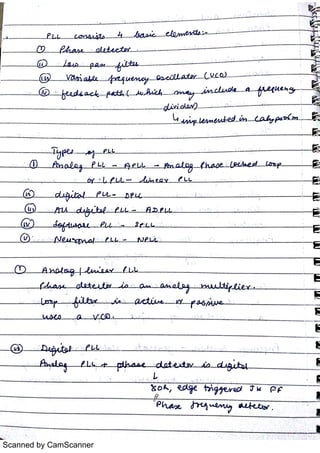 PLL consists 4 basic elements:-
(i) Phase detector
(ii) Low pass filter
(iii) Variable frequency oscillator (VCO)
(iv) feedback path ( which may include a frequency
divider)
↳ implemented in
Types of PLL
(i) Analog PLL - APLL - Analog Phase Locked Loop
or LPLL - Linear PLL
(ii) digital PLL - DPLL
(iii) All digital PLL - ADPLL
(iv) Software PLL - SPLL
(v) Neuronal PLL - NPLL
(i) Analog / linear PLL
Phase detector is an analog multiplier.
Loop filter is active or passive
uses a VCO.
(ii) Digital PLL
Analog PLL + phase detector is digital
↓
XOR, edge triggered JK FF
Phase frequency detector.
Scanned by CamScanner